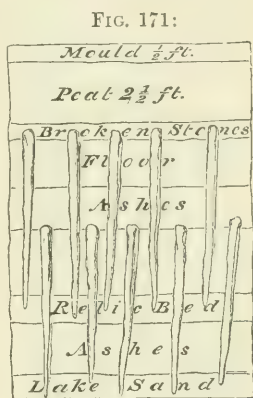 FIG. 171:
Mould ½ ft.
Peat 2½ ft.
Broken Stones
Floor
Ashes
Relic Bed
Ashes
Lake Sand